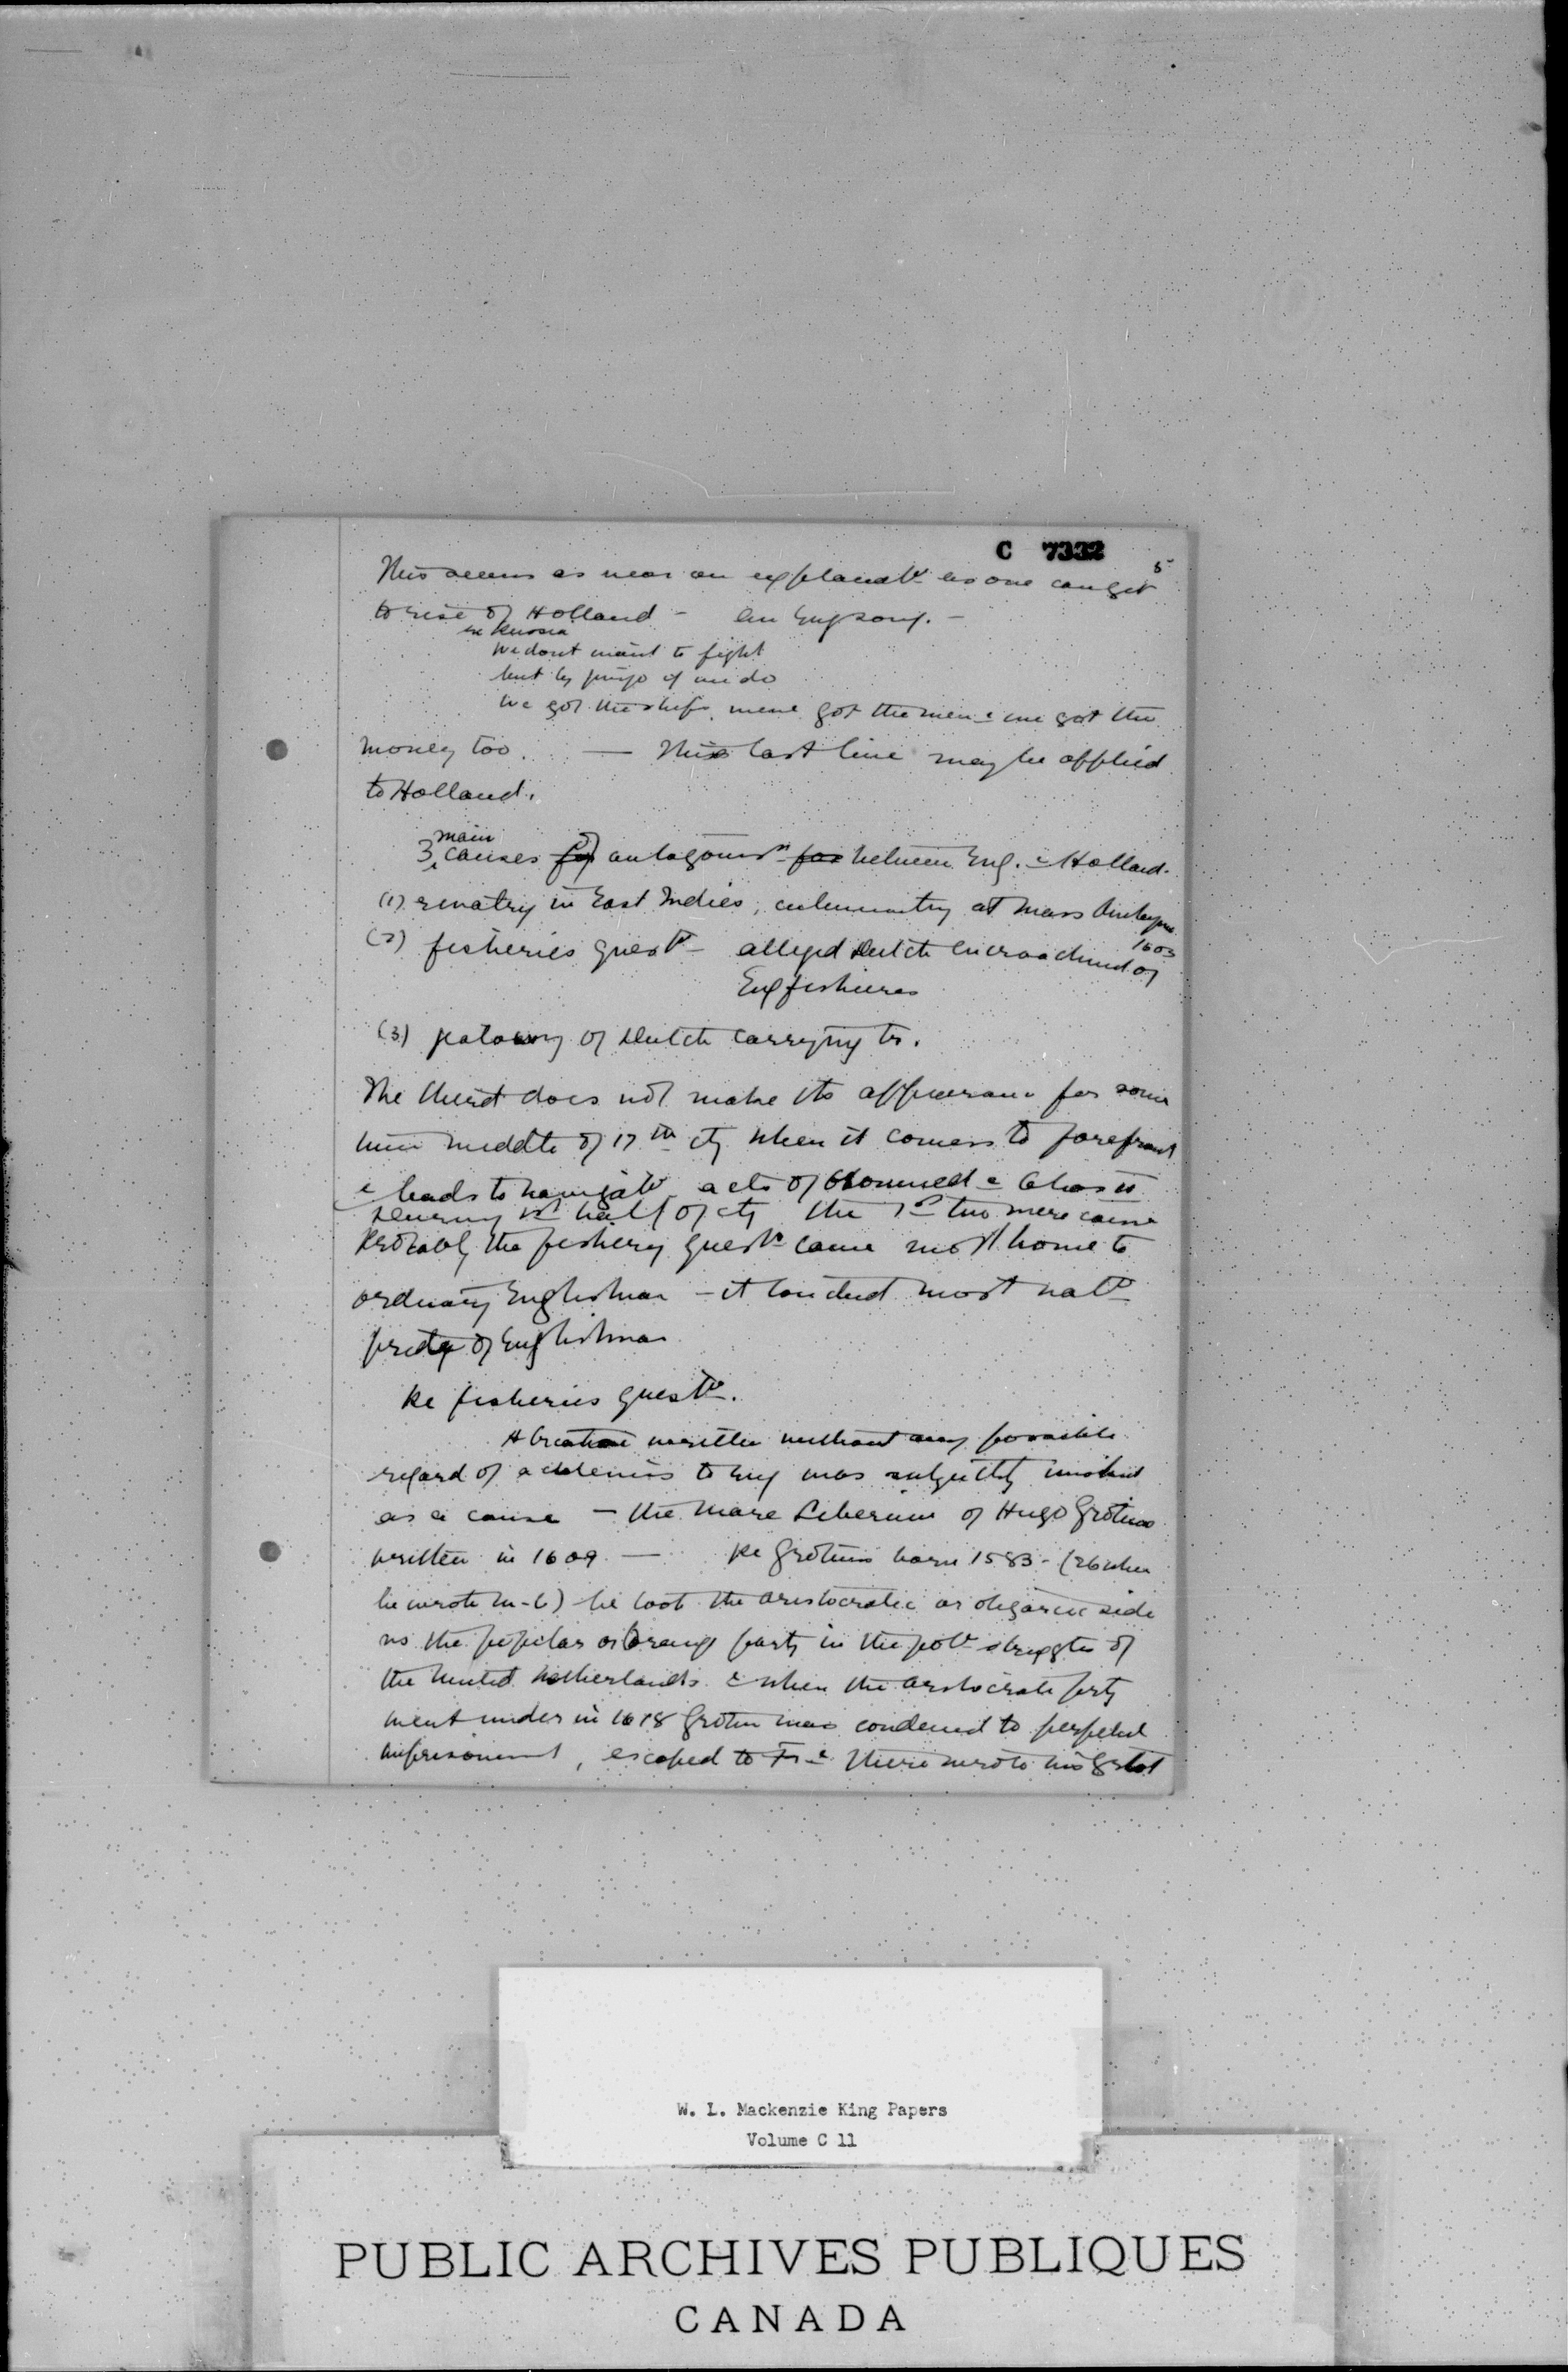 C 7332
5
This seems as near an explanatn as one can get
to rise of Holland - An Eng song. -
re Russia
We dont want to fight
but by jingo if we do
We got the ships, weve got the men & we got the
money too. — This last line may be applied
to Holland.
main
3 causes of antagonism for between Eng. & Holland.
(1) rivalry in East Indies, culminating at Mass
1603
(2) fisheries questn - alleged Dutch encroachment of
Eng fisheries
(3) jealousy of Dutch carrying tr.
The third does not make its appearance for some
time middle of 17th cty when it comes to forefront
& leads to navigatn acts of Cromwell & Chas II
During 1st half of cty the 1st two were cause
Probably the fishery questn came most home to
ordinary Englishman - it touched most natl
pride of Englishman
Re fisheries questn.
A treatise written without any possible
regard of to Eng was subqutly
as a cause - the Mare Liberum of Hugo Grotius
written in 1609 — Re Grotius born 1583 - (26 when
he wrote M-L) he took the aristocratic or oligarcic side
vs the popular or Orange party in the poll struggles of
the United Netherlands. & when the aristocratic party
went under in 1618 Grotius was condemed to perpetual
imprisonment, escaped to Fr & there wrote his grtst
W. L. Mackenzie King Papers
Volume C 11
PUBLIC ARCHIVES PUBLIQUES
CANADA